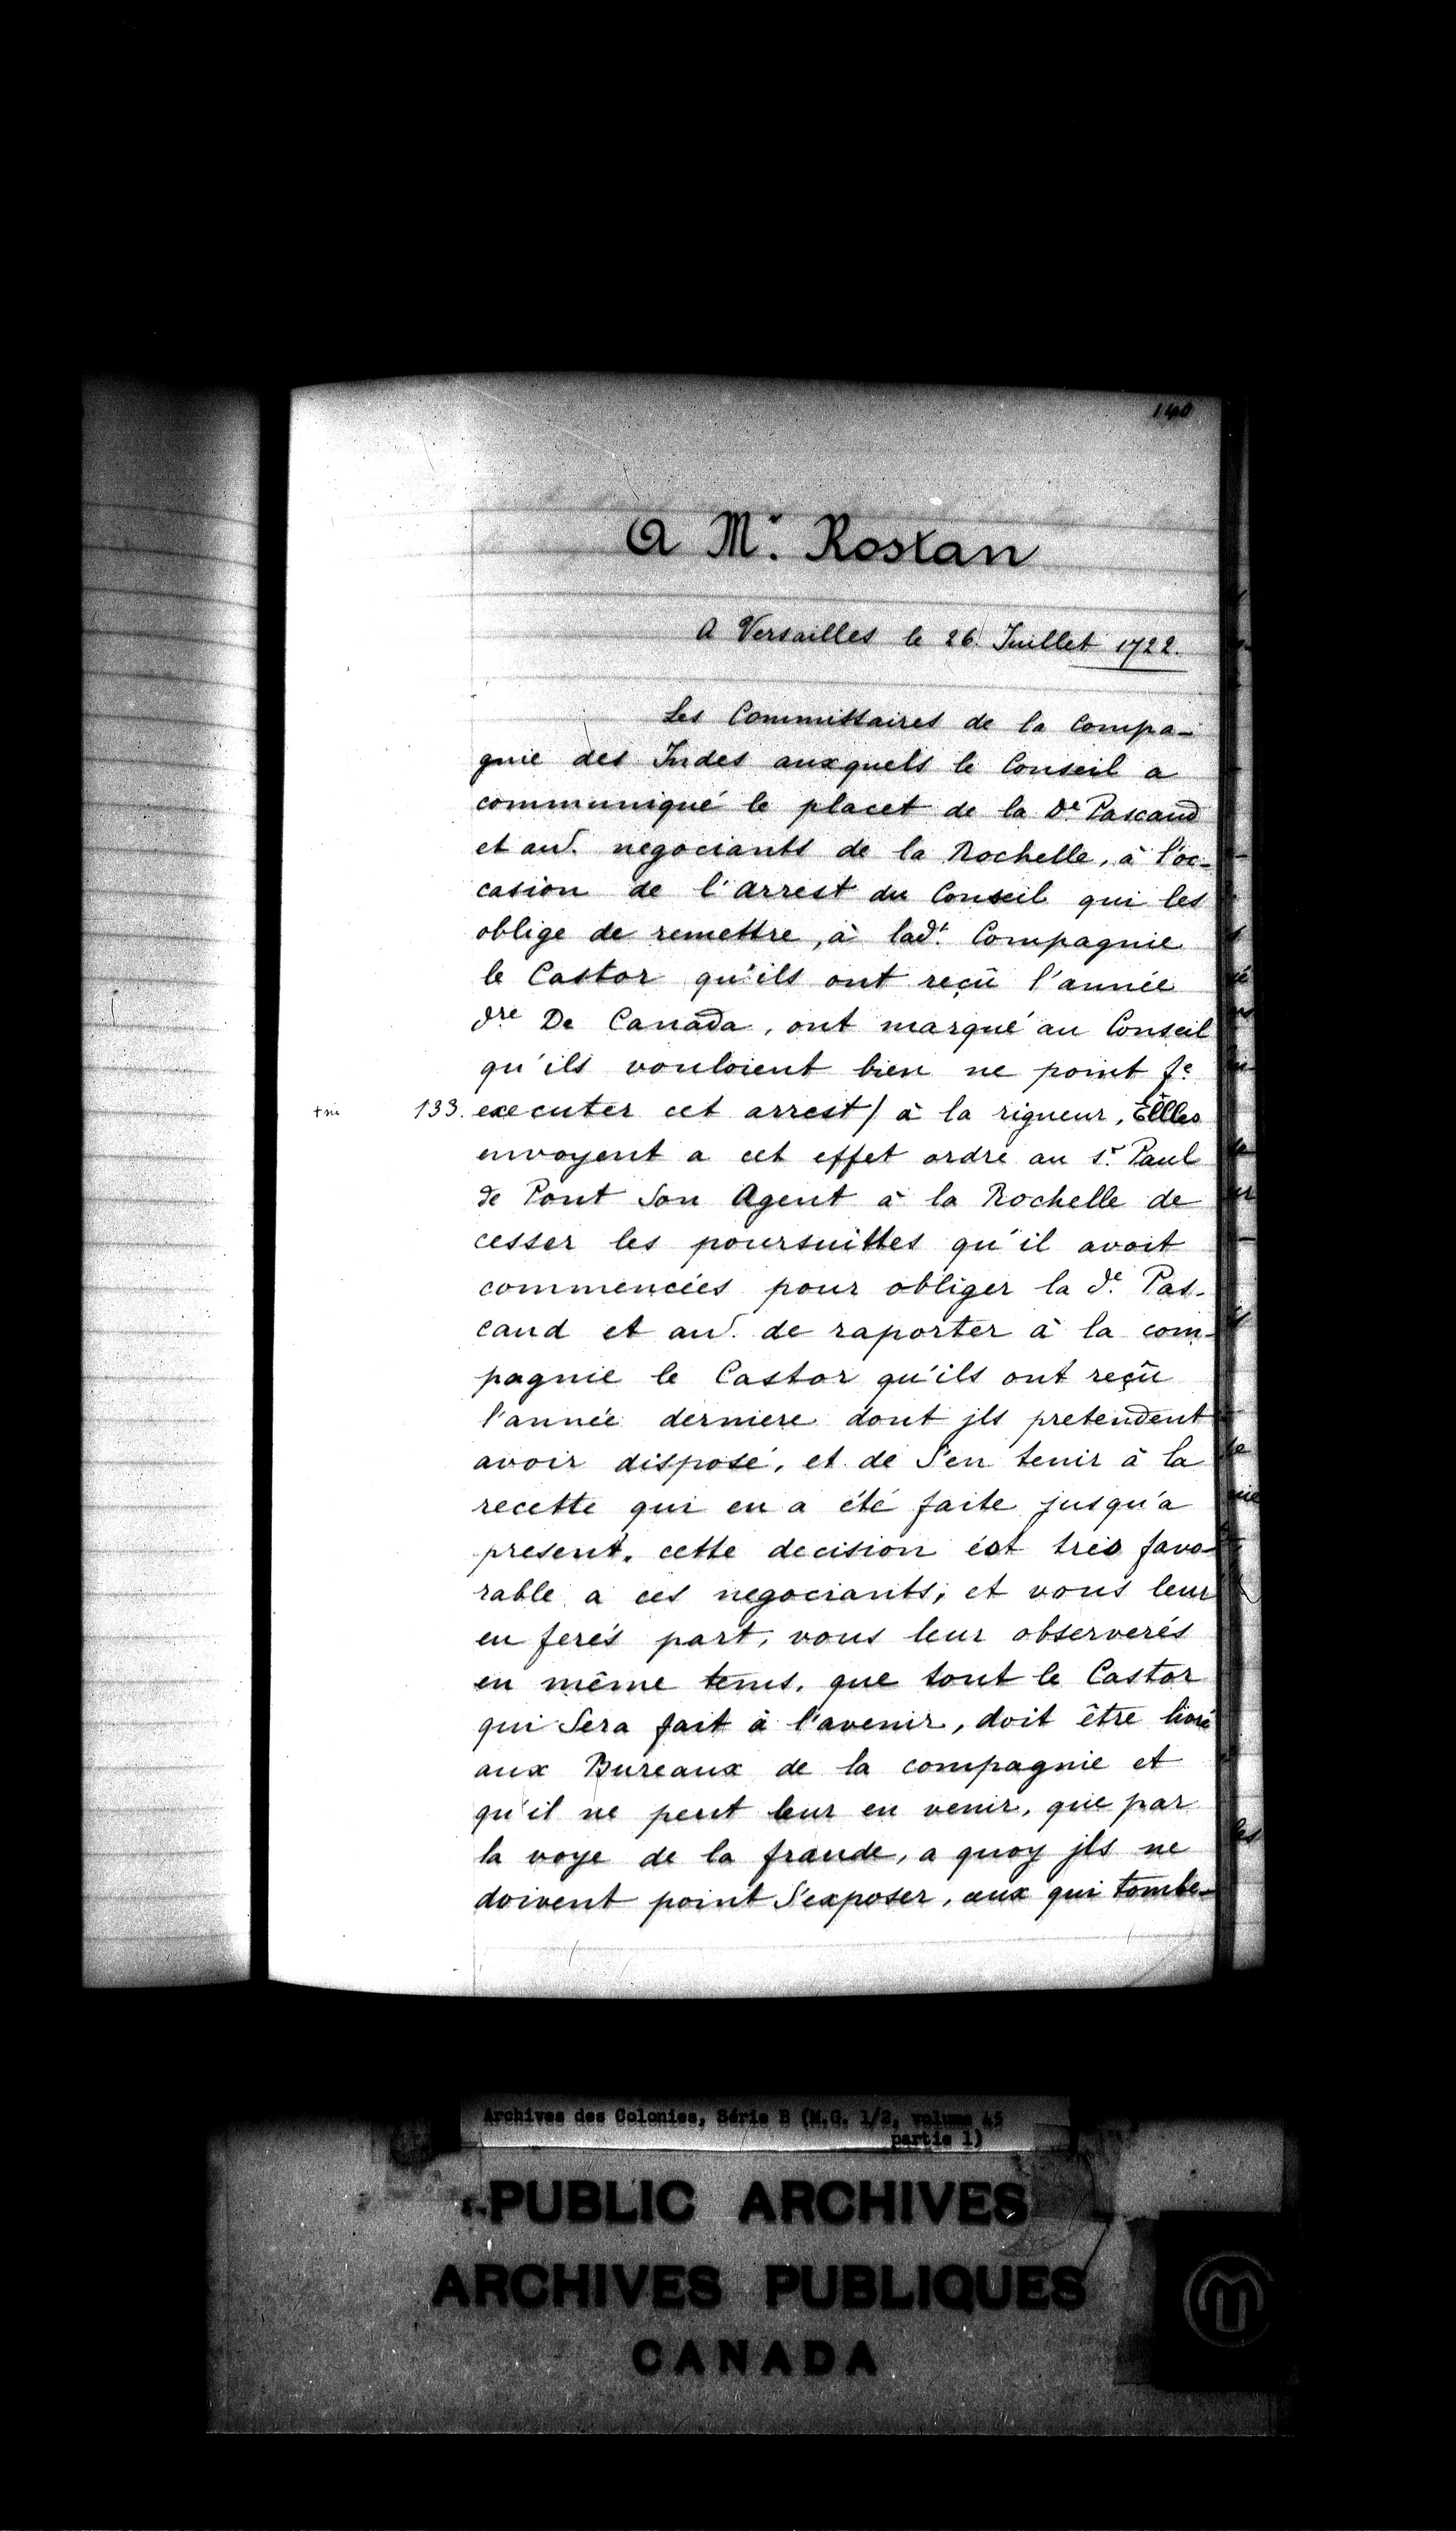 140
A Mr. Rostan
A Versailles le 26 Juillet 1722.
Les Commissaires de la Compa-
gnie des Indes auxquels le Conseil a
communiqué le placet de la De Pascaud
et aud. negociants de la Rochelle, à l'oc-
casion de l'arrest du Conseil qui les
oblige de remettre, à ladt. Compagnie
le Castor qu'ils ont reçû l'année
dre De Canada, ont marqué au Conseil
qu'ils vouloient bien ne point fe
133. executer cet arrest/ à la rigueur, Ellles
envoyent a cet effet ordre au sr. Paul
de Pont Son Agent à la Rochelle de
cesser les poursuittes qu'il avoit
commencées pour obliger la de. Pas-
caud et aud. de raporter à la com-
pagnie le Castor qu'ils ont reçû
l'année derniere dont jls pretendent
avoir disposé, et de S'en tenir à la
recette qui en a été faite jusqu'a
present. cette decision est très favo-
rable a ces negociants, et vous leur
en ferés part, vous leur observerés
en même tems. que tout le Castor
qui Sera fait à l'avenir, doit être livré
aux Bureaux de la compagnie et
qu'il ne peut leur en venir, que par
la voye de la fraude, a quoy jls ne
doivent point S'exposer, ceux qui tombe-
Archives des Colonies, Série B (M.G. 1/2, volume 45
partie 1)
PUBLIC ARCHIVES
ARCHIVES PUBLIQUES
CANADA